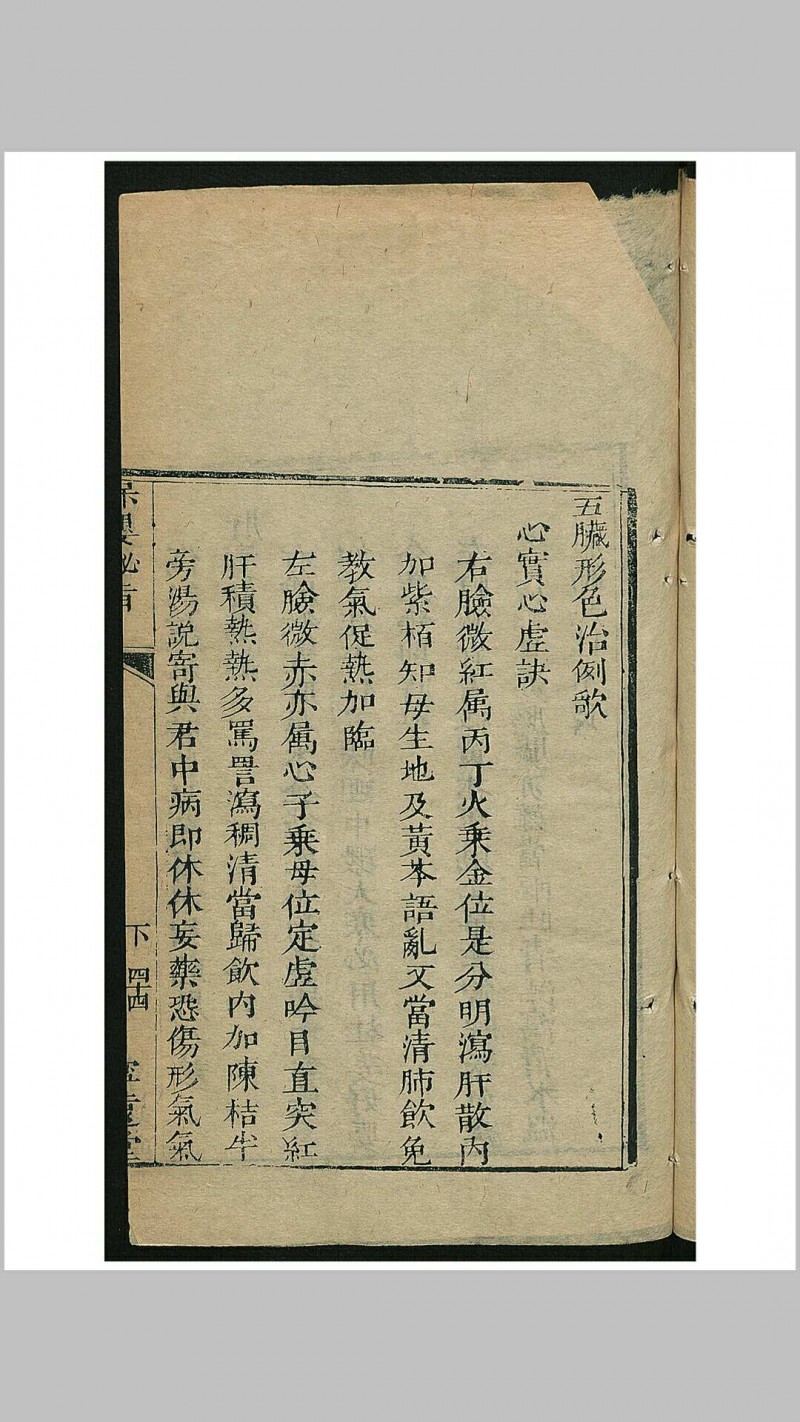 五臟形色治例歌
心實心虛訣
右臉微紅属丙丁火乘金位是分明瀉肝散內
加紫栢知母生地及黃芩語亂又當清肺飲免
教氣促熱加臨
左臉微赤亦属心子乘母位定虛吟目直突紅
肝積熱熱多罵詈瀉稠清當歸飲內加陳桔牛
旁湯説寄與君中病即休休妄藥恐傷形氣氣
保嬰秘旨
下 四十四